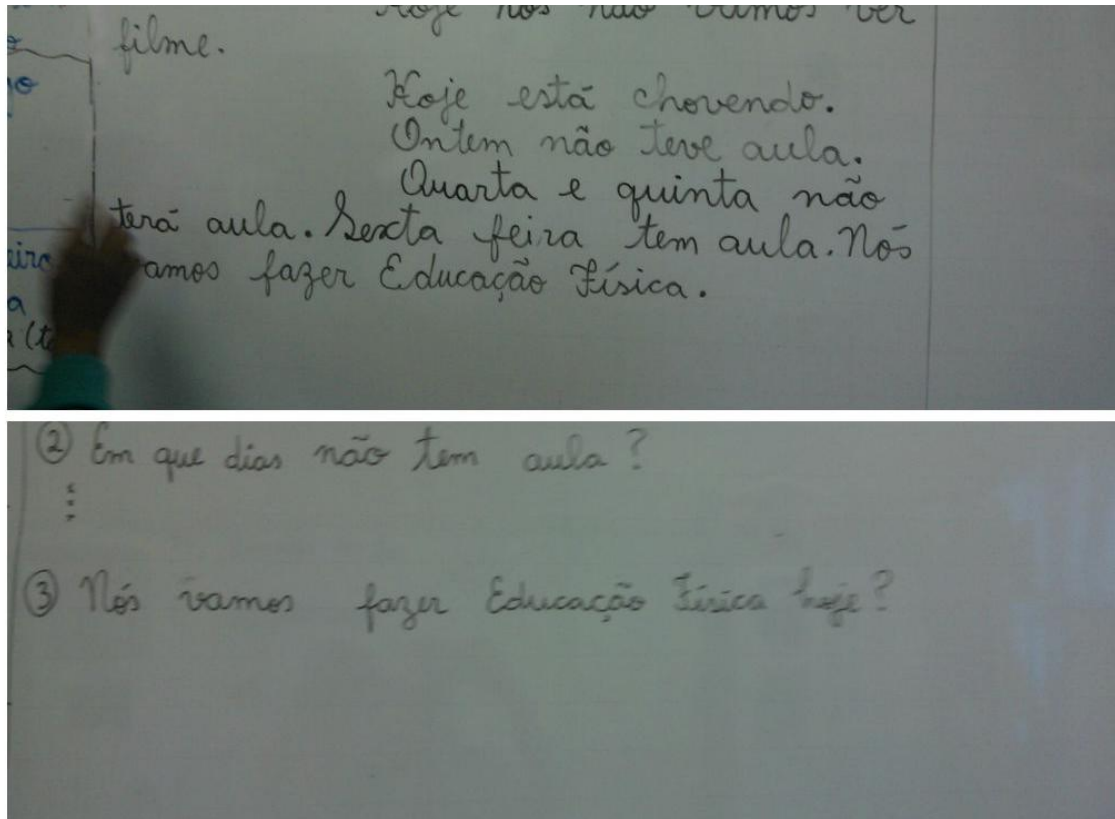 Hoje nós não vamos ver
filme.
Hoje está chovendo.
Ontem não teve aula.
Quarta e quinta não
terá aula. Sexta feira tem aula. Nós
amos fazer Educação Física.
② Em que dias não tem aula?
③ Nós vamos fazer Educação Física hoje?